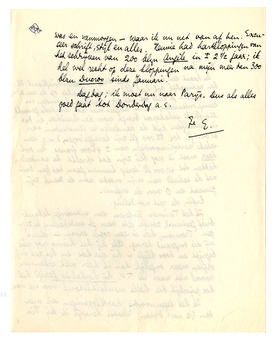 was en vanmorgen - waar ik nu net van af ben. Even-
eer schrift, stijl en alles. Tannie had hartkloppingen van
het bedrijven van 200 blzn Angèle in ± 2 1/2 jaar; ik
heb wel recht op deze kloppingen na mijn meer dan 300
blzn Bueros sinds Januari.
dag dag; ik moet nu naar Parijs. Dus als alles
goed gaat tot Donderdag a.s.
E.